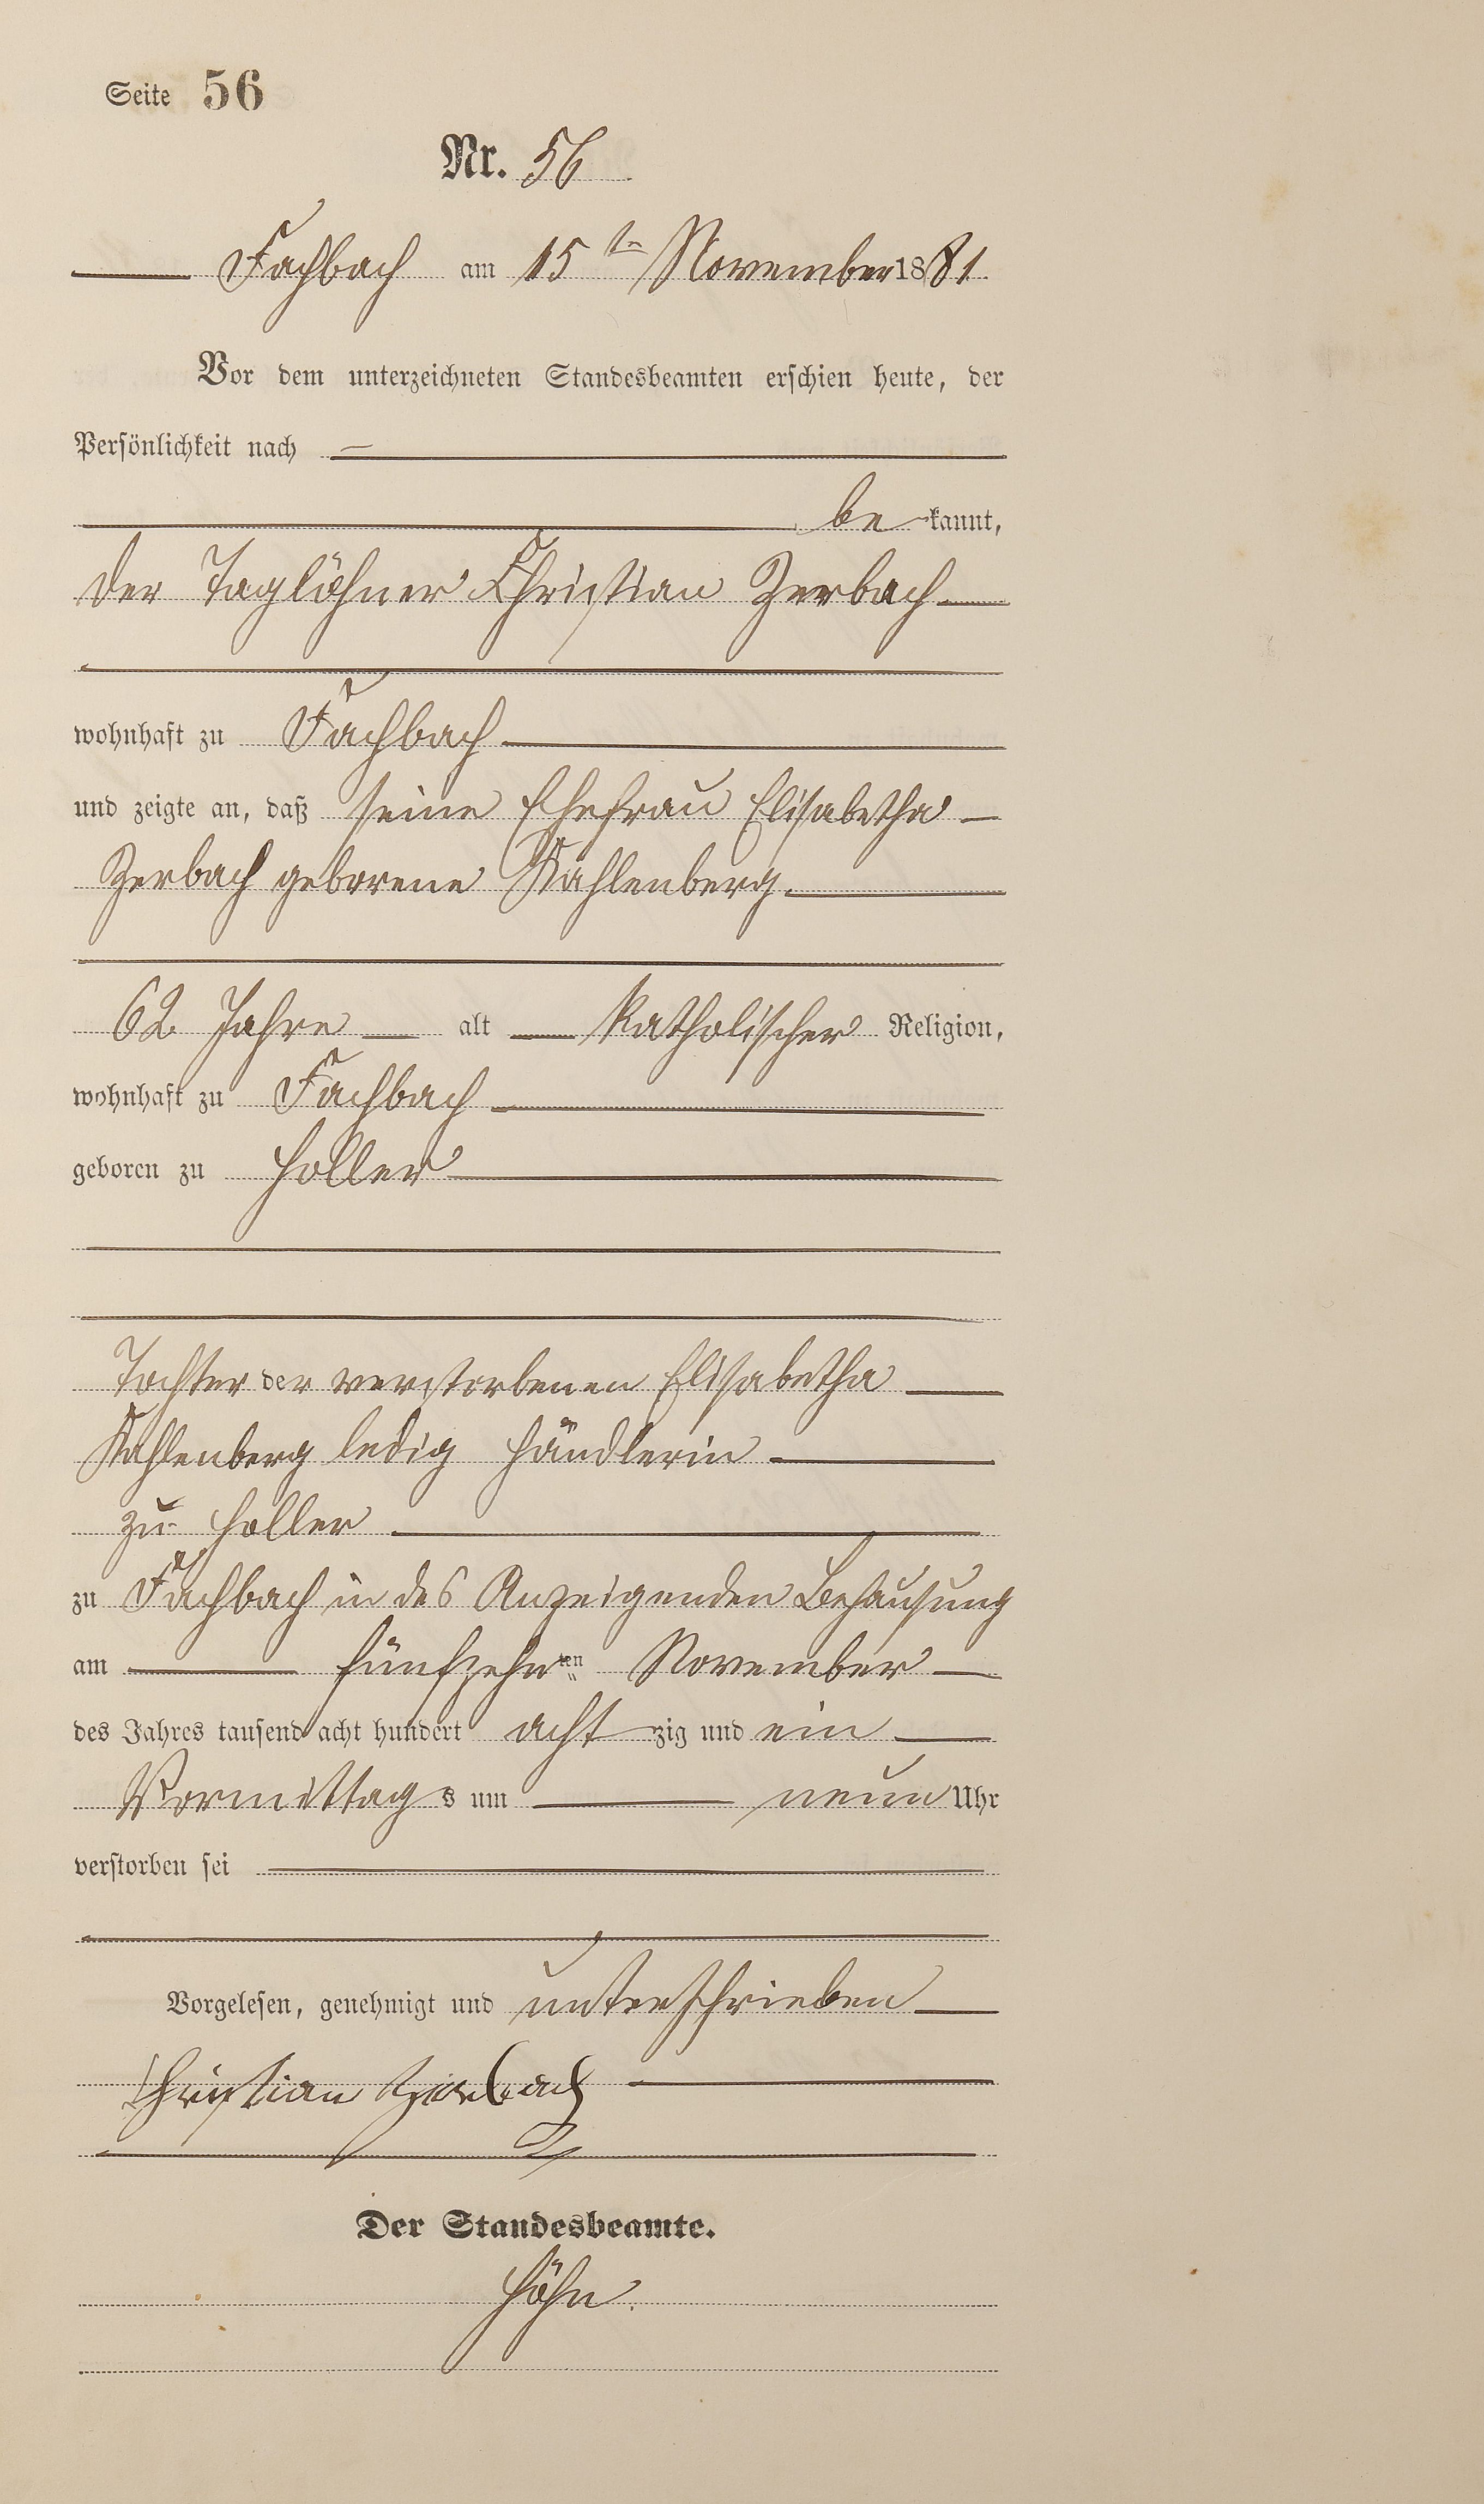 Seite 56
Nr. 56
Fachbach am 15ten November 1881.
Vor dem unterzeichneten Standesbeamten erschien heute, der
Persönlichkeit nach
be kannt,
der Taglöhner Christian Zerbach
wohnhaft zu Fachbach
und zeigte an, daß seine Ehefrau Elisabetha
Zerbach geborene Kahlenberg.
62 Jahre alt katholischer Religion,
wohnhaft zu Fachbach
geboren zu Holler
Tochter der verstorbenen Elisabetha
Kahlenberg ledig Händlerin
zu Holler
zu Fachbach in des Anzeigenden Behausung
am fünfzehnten November
des Jahres tausend acht hundert acht zig und ein
Vormittags um neun Uhr
verstorben sei
Vorgelesen, genehmigt und unterschrieben
Christian Zerbach
Der Standesbeamte.
Höhn.